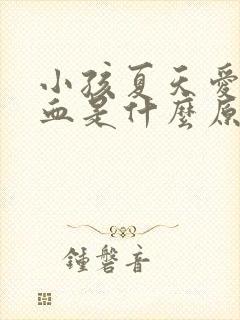 小孩夏天愛
血是什麼原
鍾磬音